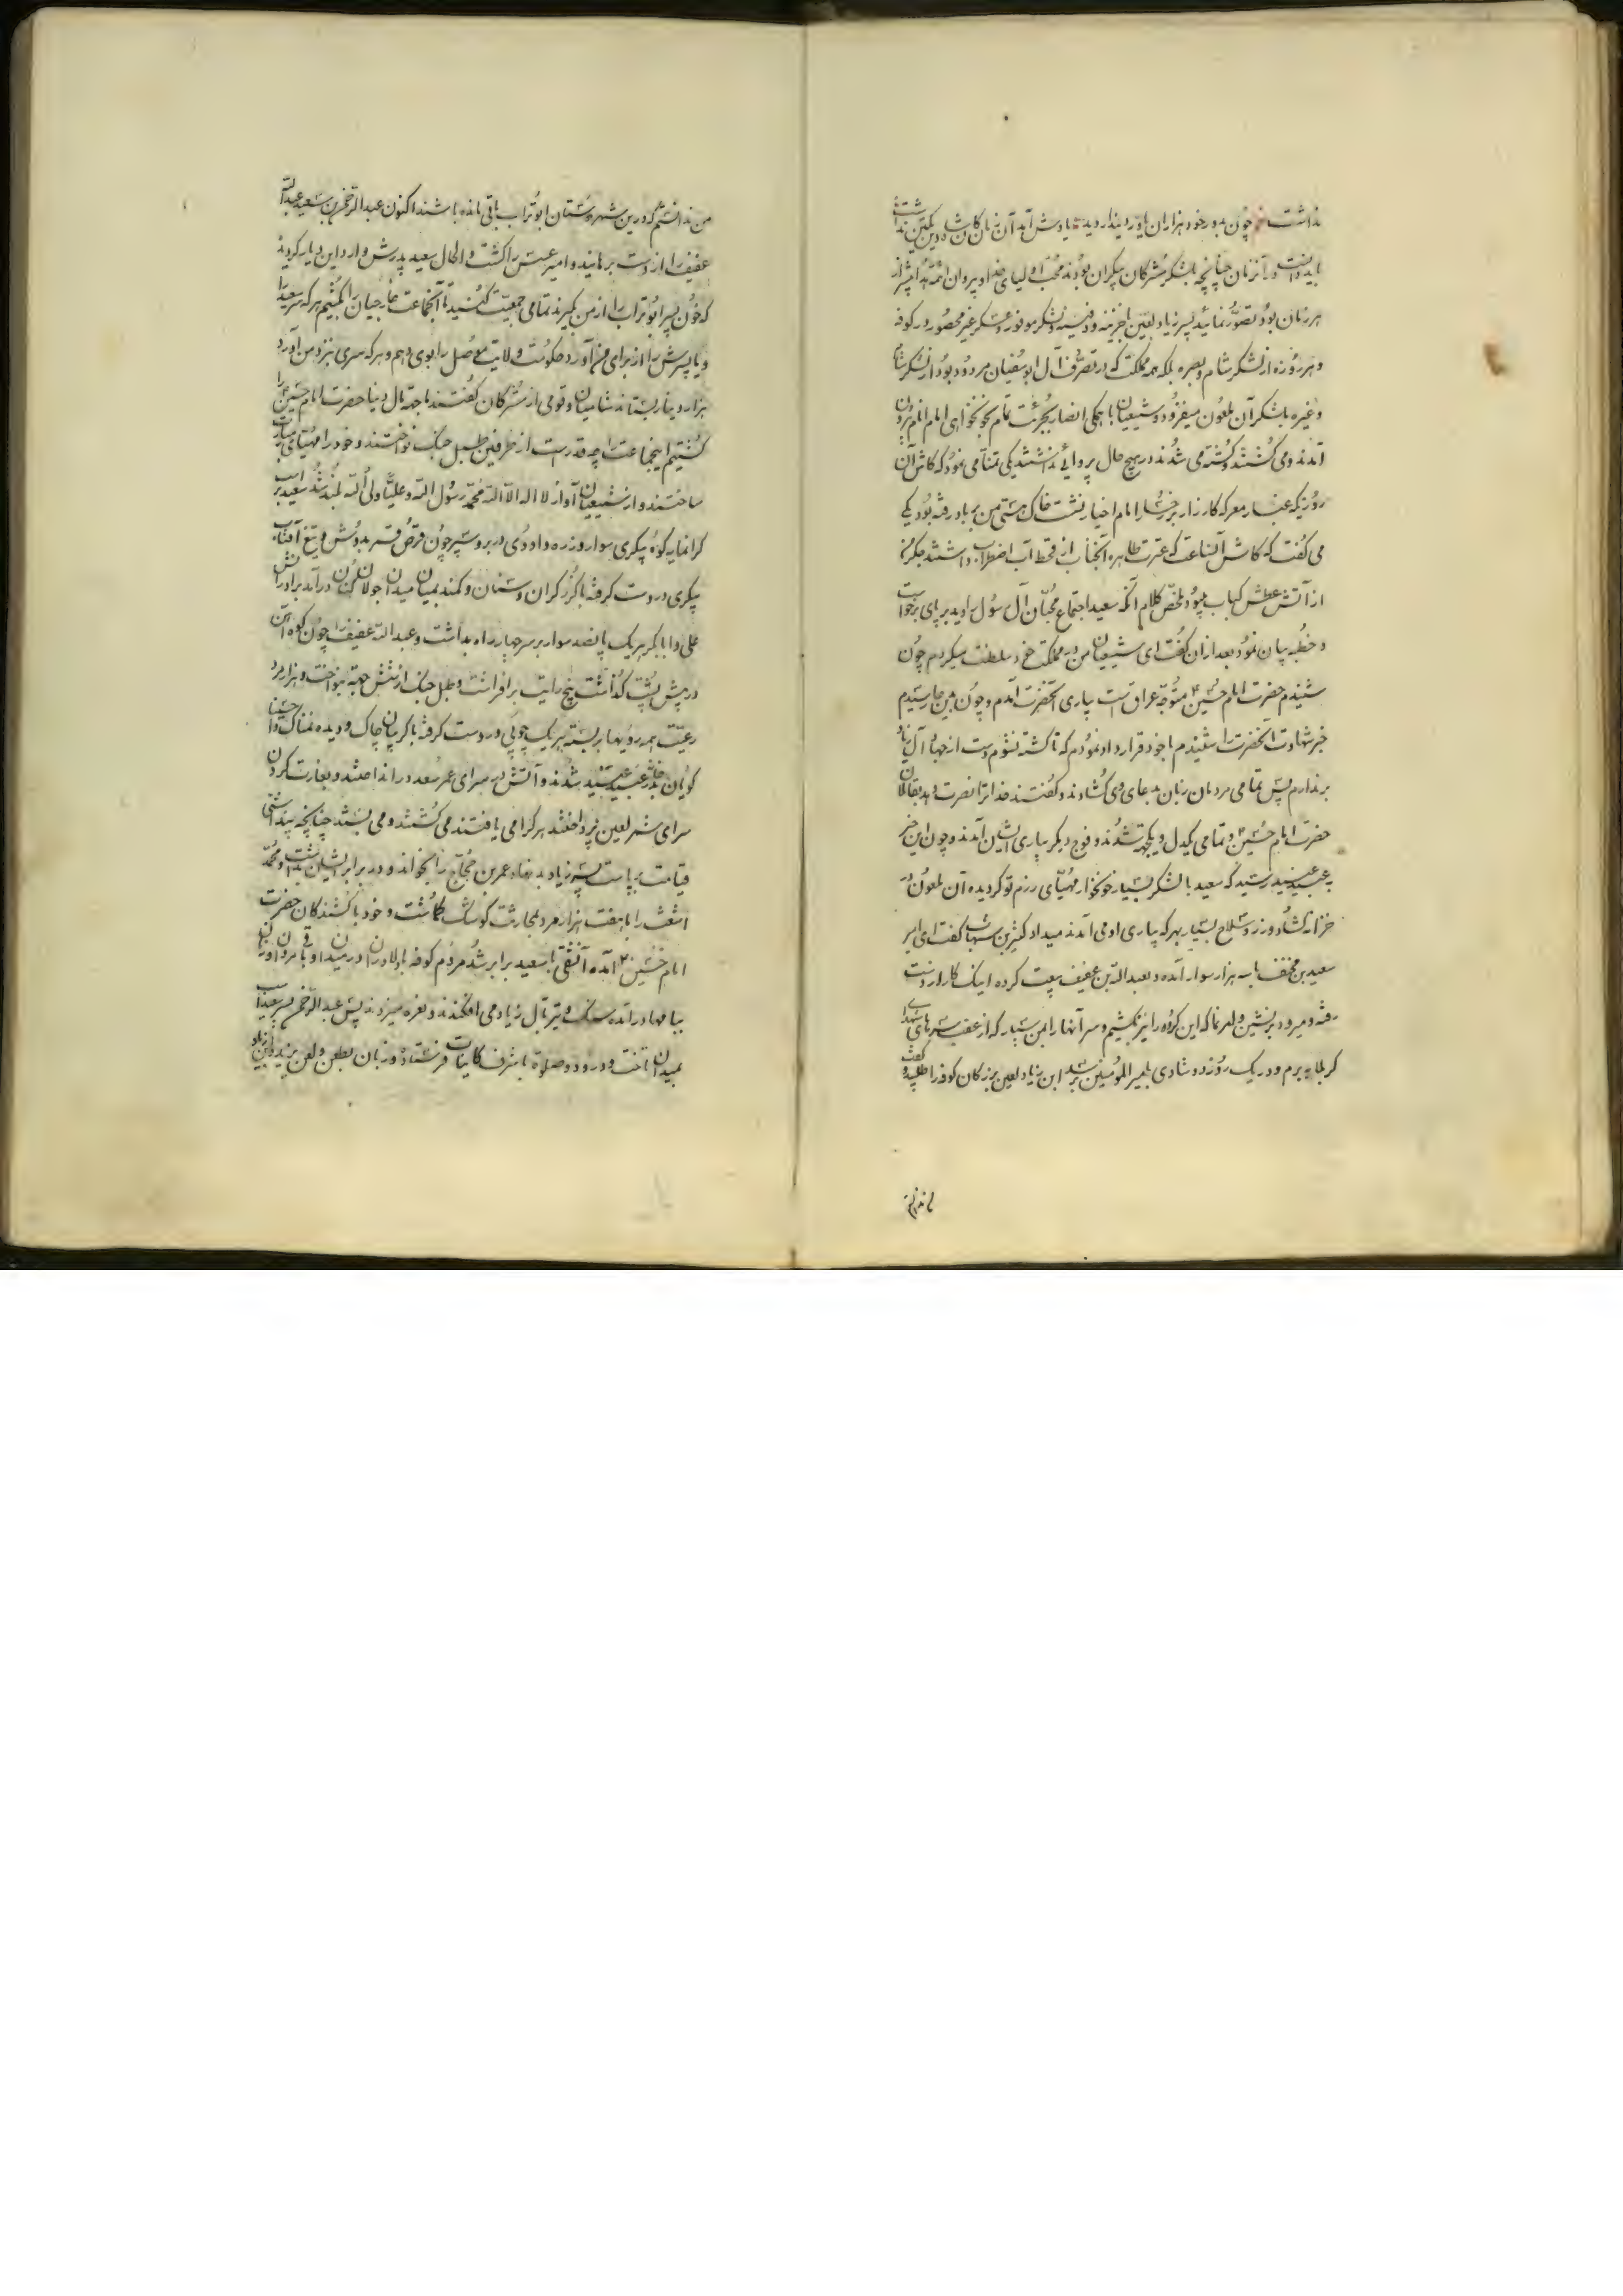 نداشت چون بدور خود هزاران یاور دیندار دید یادش آمد آن زمان کان شاه دین یکتن نداشت
باید دانست در آنزمان چنانچه لشکر مشرکان بیکران بودند محبّ اولیای خدا و پیروان ائمّه هدا بیشتر از
هر زمان بود تصوّر نمائید پسر زیاد لعین با خزینه و دفینه و لشکر موفور و عسکر غیر محصور در کوفه
و هر روزه از لشکر شام و بصره بلکه همه مملکت که در تصرّف آل ابوسفیان مردود بود از لشکر شام
و غیره بلشکر آن ملعون میفزود و شیعیان با همگی انصار بجرئت تمام بخونخواهی امام انام بیرون
آمدند و می کشتند و کشته می شدند در هیچ حال پروائی نداشتند یکی تمنّا می نمود که کاش آن
روزیکه غبار معرکه کارزار بر رخسار امام اخیار نشست خاک هستی من بر باد رفته بود یکی
می گفت که کاش آنساعت که عترت طاهره آنجناب از قحط آب اضطراب داشتند جگر من
از آتش عطش کباب میبود ملخّص کلام آنکه سعید اجتماع محبّان آل رسول را دید بر پای برخواست
و خطبه بیان نمود بعد از آن گفت ای شیعیان من در مملکت خود سلطنت میکردم چون
شنیدم حضرت امام حسین ع متوجّه عراق است بیاری آنحضرت آمدم و چون باینجا رسیدم
خبر شهادت آنحضرت را شنیدم با خود قرار داد نمودم که تا کشته نشوم دست از جهاد آل زیاد
برندارم پس تمامی مردمان زبان بدعای وی گشادند و گفتند خدا ترا نصرت دهد بقاتلان
حضرت امام حسین ع و تمامی یکدل و یکجهت شدند و فوج دیگر بیاری ایشان آمدند و چون این خبر
بعبید پلید رسید که سعید با لشکر بسیار خونخوار مهیّای رزم تو گردیده آن ملعون در
خزانه گشاد و زر و سلاح بسیار بهر که بیاری او می آمدند میداد کثیر بن شهاب گفت ای امیر
سعید بن مخنف با سه هزار سوار آمده و بعبدالله بن عفیف بیعت کرده اینک کار از دست
رفته و میرود بر نشین و امر نما که این گروه را نیز بکشیم و سر آنها را بمن بسپار که از عقب سرهای شهدای
کربلا ببرم و در یک روز دو شادی بامیر المؤمنین برسد ابن زیاد لعین بزرگان کوفه را طلبید و گفت
من ندانستم که درین شهر دوستان ابوتراب باقی مانده باشند اکنون عبدالرّحمن بن سعید عبدالله
عفیف را از دست برهانید و امیر عسس را کشت و الحال سعید پدرش وارد این دیار گردیده
که خون پسر ابوتراب را از من بگیرند تمامی جمعیّت کنید تا آنجماعت خارجیان را بکشیم هر که سر سعید
و یا پسرش را از برای من آورد حکومت و ولایت موصل را بوی دهم و هر که سری نزد من آورد
هزار دینار بستاند شامیان و قومی از مشرکان گفتند ما جهة مال دنیا حضرت امام حسین ع را
کشتیم اینجماعت را چه قدر است از طرفین طبل جنگ نواختند و خود را مهیّای مبارزت
ساختند و از شیعیان آواز لا اله الا الله محمّد رسول الله و علیّا ولی الله بلند شد سعید بر اسب
گرانمایه کوه پیکری سوار و زره داودی در بر و سپر چون قرص قمر بدوش و تیغ آفتاب
پیکری در دست گرفته با گرز گران و سنان و کمند بمیان میدان جولان کنان در آمد برادرانش
علی و ابابکر هریک پانصد سوار بر سر چهار راه بداشت و عبدالله عفیف را چون کوه آهن
در پیش پشت گذاشت پنج رایت برافراشت و طبل جنگ از شش جهة بنواخت و هزار مرد
رعیّت همه رویها بر بسته هریک چوبی در دست گرفته با گریبان چاک و دیده نمناک وا حسینا
گویان بدر خانه عبید پلید شدند و آتش در سرای عمر سعد در انداختند و بغارت کردن
سرای شمر لعین پرداختند هر کرا می یافتند می کشتند و می بستند چنانچه پنداشتی
قیامت برپاست پسر زیاد بد نهاد عمر بن حجّاج را بخواند و در برابر ایشان بداشت و محمّد
اشعث را با هفت هزار مرد بمحاربت گوشاک گماشت و خود با کشندگان حضرت
امام حسین ع آمده آن شقی با سعید برابر شد مردم کوفه با دلاوران در میدان و باقی مردان و زنان
ببامها در آمده سنگ و تیر بآل زیاد می افکندند و نعره میزدند پس عبدالرّحمن پسر سعید اسب
بمیدان تاخت و درود و صلوة باشرف کاینات فرستاد و زبان بطعن و لعن یزید و ابن زیاد